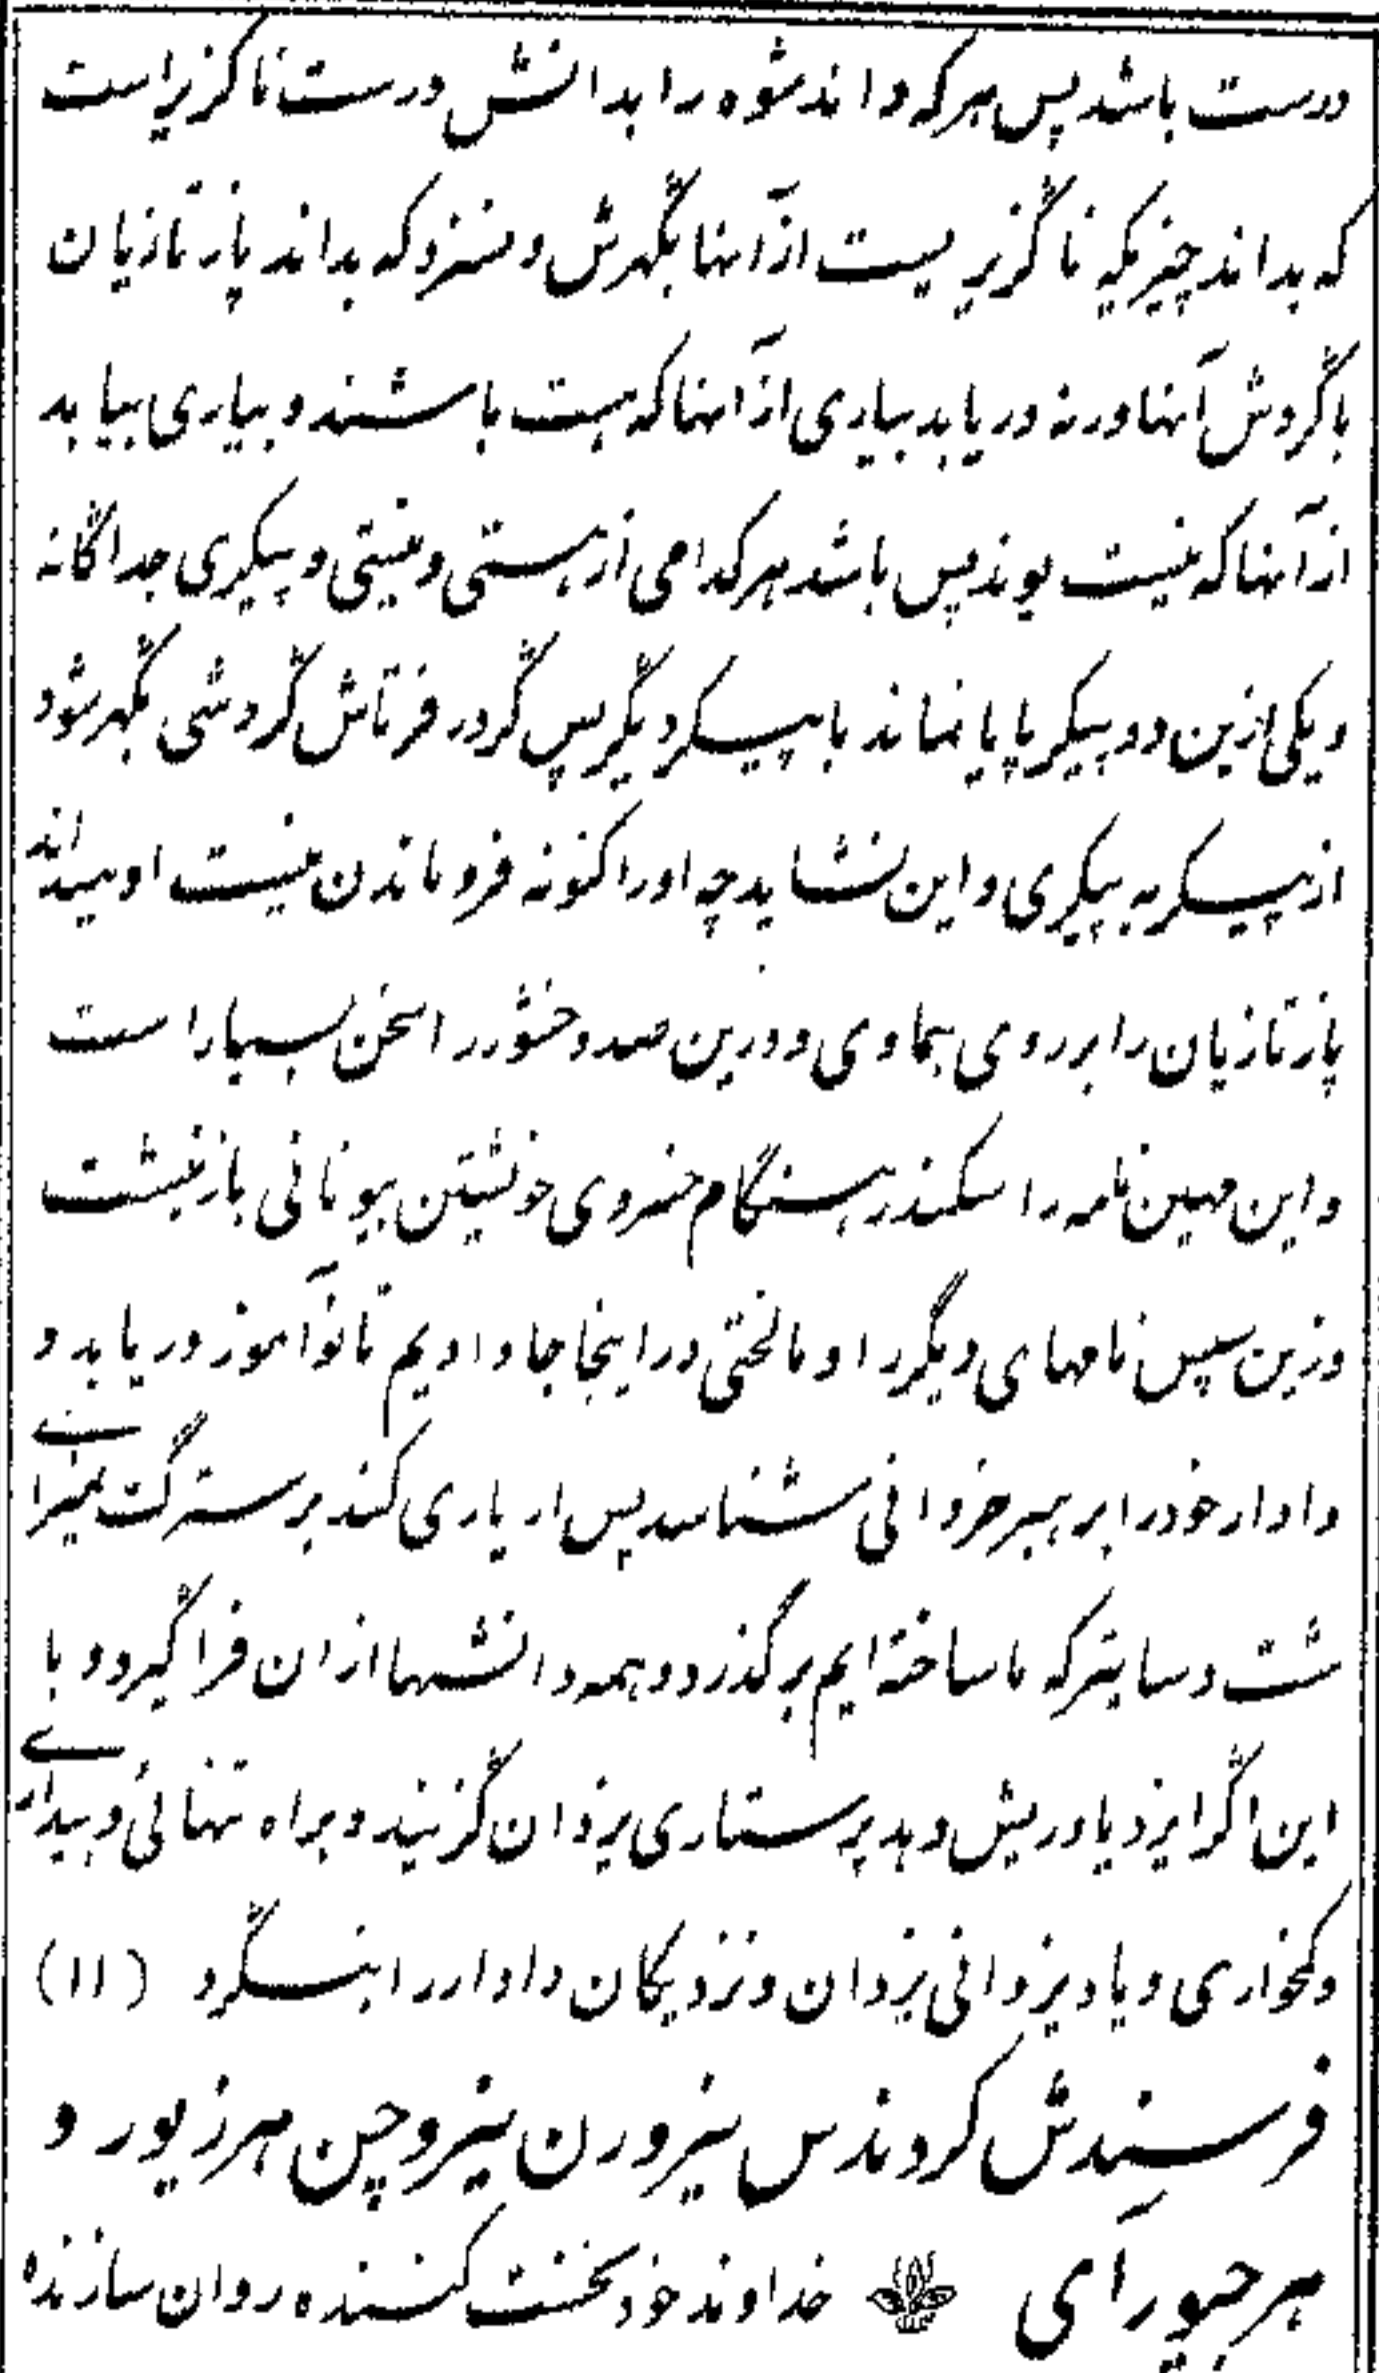 درست باشد پس هر که داند شوه را بدانش درست ناگزیر است
که بداند چیزیکه ناگزیریست از آنها بگهرش و سزد که بداند پازتازیان
با گردش آنها ورنه دریابد بیاری از آنها که هست باشند و بیاری بیابد
از آنها که نیست بوند پس باشد هر کدامی از هستی و نیستی و پیکری جداگانه
و یکی ازین دو پیکر پایا نماند با پیکر دیگر پس گردد فرتاش گردشی بگهر شود
از پیکر به پیکری و این نشاید چه او را کنونه فرو ماندن نیست او میداند
پازتازیان را بر روی هماوی و درین صد و خشور را سخن بسیار است
و این مهین نامه را سکندر هنگام خسروی خویشتن بیونانی باز نبشت
و زین سپس نامهای دیگر را و ما لختی در اینجا جا دادیم تا نوآموز دریابد و
دادار خود را بر هبر خردانی شناسد پس ار یاری کند بر سترگ تمیرائی
شت دساتیر که ما ساخته ایم برگذرد و همه دانشها از ان فراگیرد و با
این اگر ایزد یاوریش دهد پرستاری یزدان گزیند و براه تنهائی و بیداری
و کمخواری و یاد یزدانی یزدان و نزدیکان دادار را بنگرد (۱۱)
فرسیندش کروندس نیرورن نیروچن هرزیور و
هرجیورآی خداوند خود نخست کننده روان سازنده